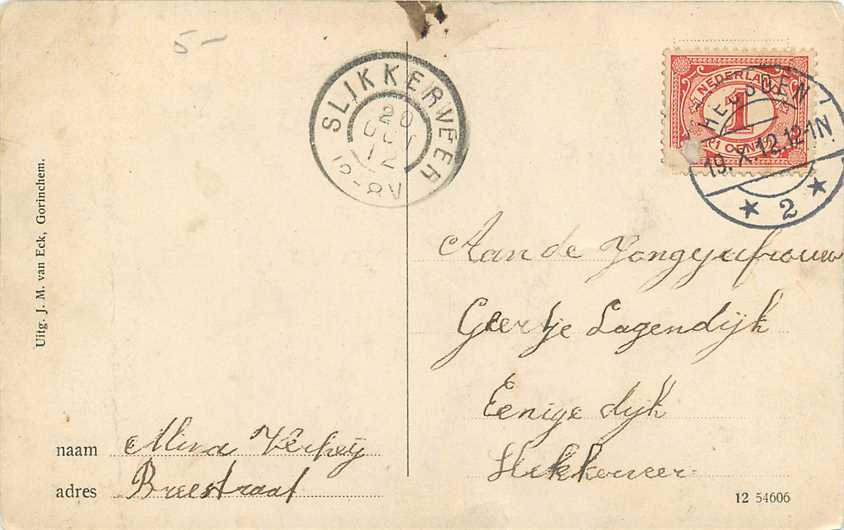 5-
SLIKKERVEER
20 OCT 12
12-8V
NEDERLAND
1
1 CENT
HEUSDEN
19.X.12.12-1N
2
Uitg. J. M. van Eck, Gorinchem.
Aan de Jongejufrouw
Geertje Lagendijk
Eenige dijk
Slikkerveer
naam Mina Verheij
adres Breestraat
12 54606